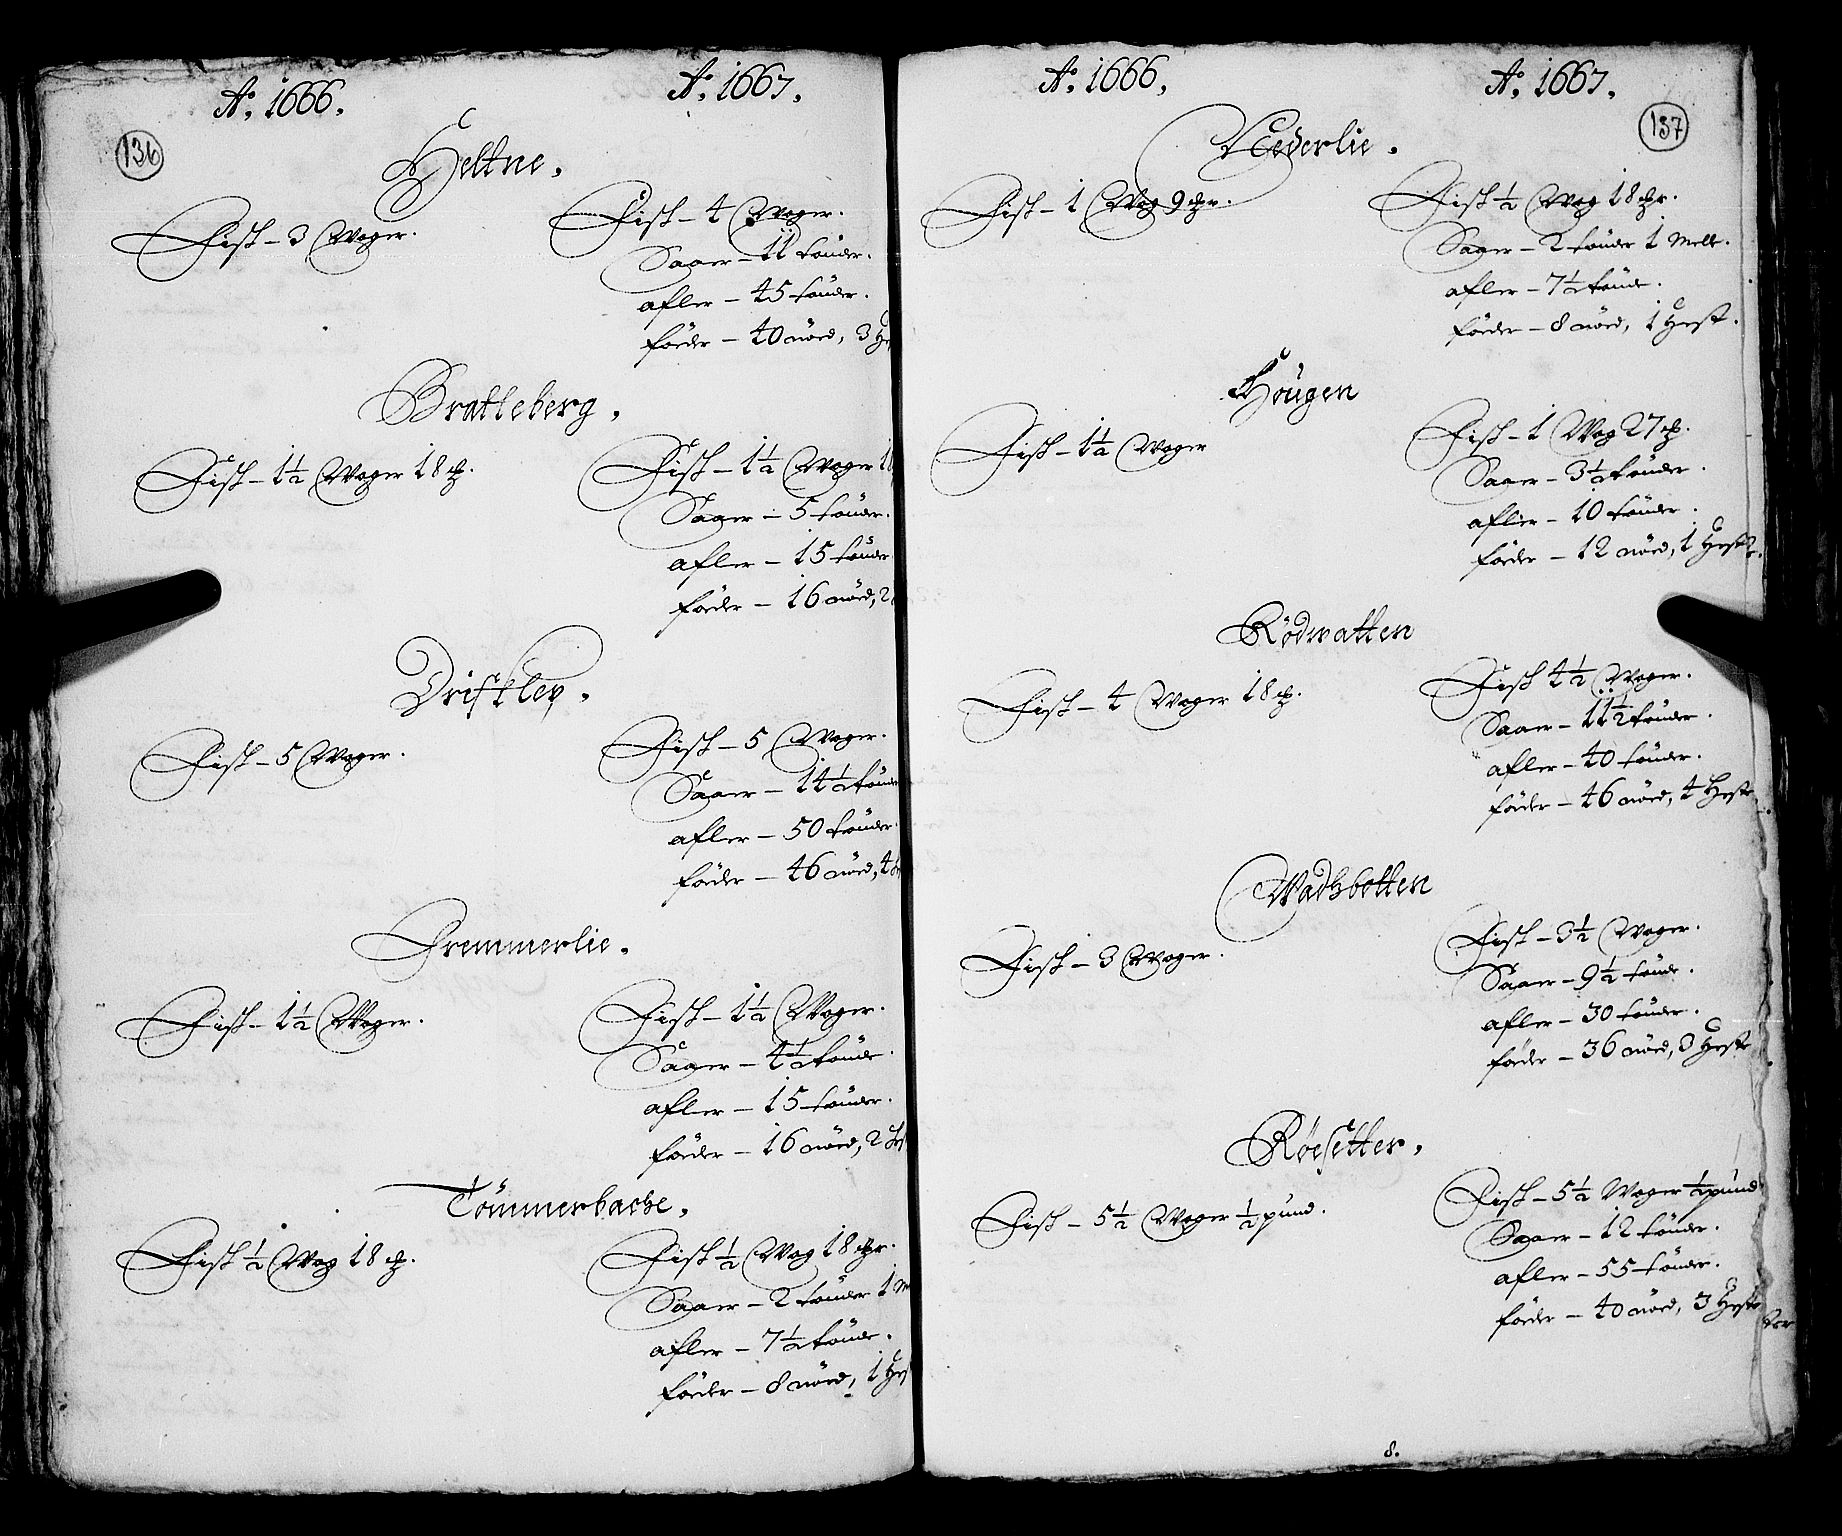 136
Ao. 1666. Ao. 1667.
Heltne.
Fisk - 3 Woger. Fisk - 4 Woger.
Saaer - 11 tönder.
afler - 45 tönder.
föder - 40 nöed, 3
Bratteberg.
Fisk - 1½ Woger 18 ℔. Fisk - 1½ Woger 18
Saaer - 5 tönder.
afler - 15 tönder
föder - 16 nöed, 2
Driftley.
Fisk - 5 Woger. Fisk - 5 Woger.
Saaer - 14½ tönder
afler - 50 tönder.
föder - 46 nöed, 4
Fremmerlie.
Fisk - 1½ Woger. Fisk - 1½ Woger.
Saaer - 4½ tönde.
afler - 15 tönder.
föder - 16 nöed, 2
Tömmerbacke.
Fisk ½ Wog 18 ℔. Fisk ½ Wog 18 ℔r.
Saaer - 2 tönder 1
afler - 7½ tönde.
föder - 8 nöed, 1
Ao. 1666. Ao. 1667.
137
Nederlie.
Fisk - 1 Wog 9 ℔r. Fisk ½ Wog 18 ℔r.
Saaer - 2 tönder 1 Mele.
afler - 7½ tönde.
föder - 8 nöed, 1 Hest.
Hougen
Fisk - 1½ Woger Fisk - 1 Wog 27 ℔.
Saaer - 3½ tönder.
afler - 10 tönder.
föder - 12 nöed, 1 Hest.
Rödwatten
Fisk - 4 Woger 18 ℔. Fisk 4½ Woger.
Saaer - 11½ tönder.
afler - 40 tönder.
föder - 46 nöed, 4 Heste.
Wadhbotten
Fisk - 3 Woger. Fisk - 3½ Woger.
Saaer - 9½ tönde.
afler - 30 tönder.
föder - 36 nöed, 3 Heste
Röesetter.
Fisk - 5½ Woger ½ pund. Fisk - 5½ Woger ½ pund
Saaer - 12 tönder.
afler - 55 tönder.
föder - 40 nöed, 3 Heste
8.